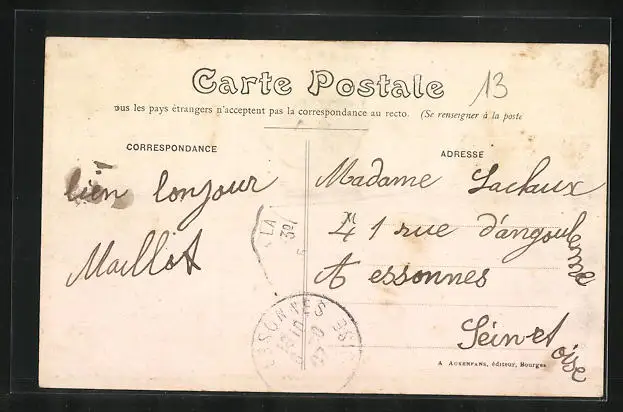 Carte Postale
13
ous les pays étrangers n'acceptent pas la correspondance au recto. (Se renseigner à la poste
CORRESPONDANCE
ADRESSE
bien bonjour
Maillot
Madame Lachaux
41 rue d'angouleme
A essonnes
Sein et oise
LA
30/
ESSONNES
A AUXENFANS, éditeur, Bourges